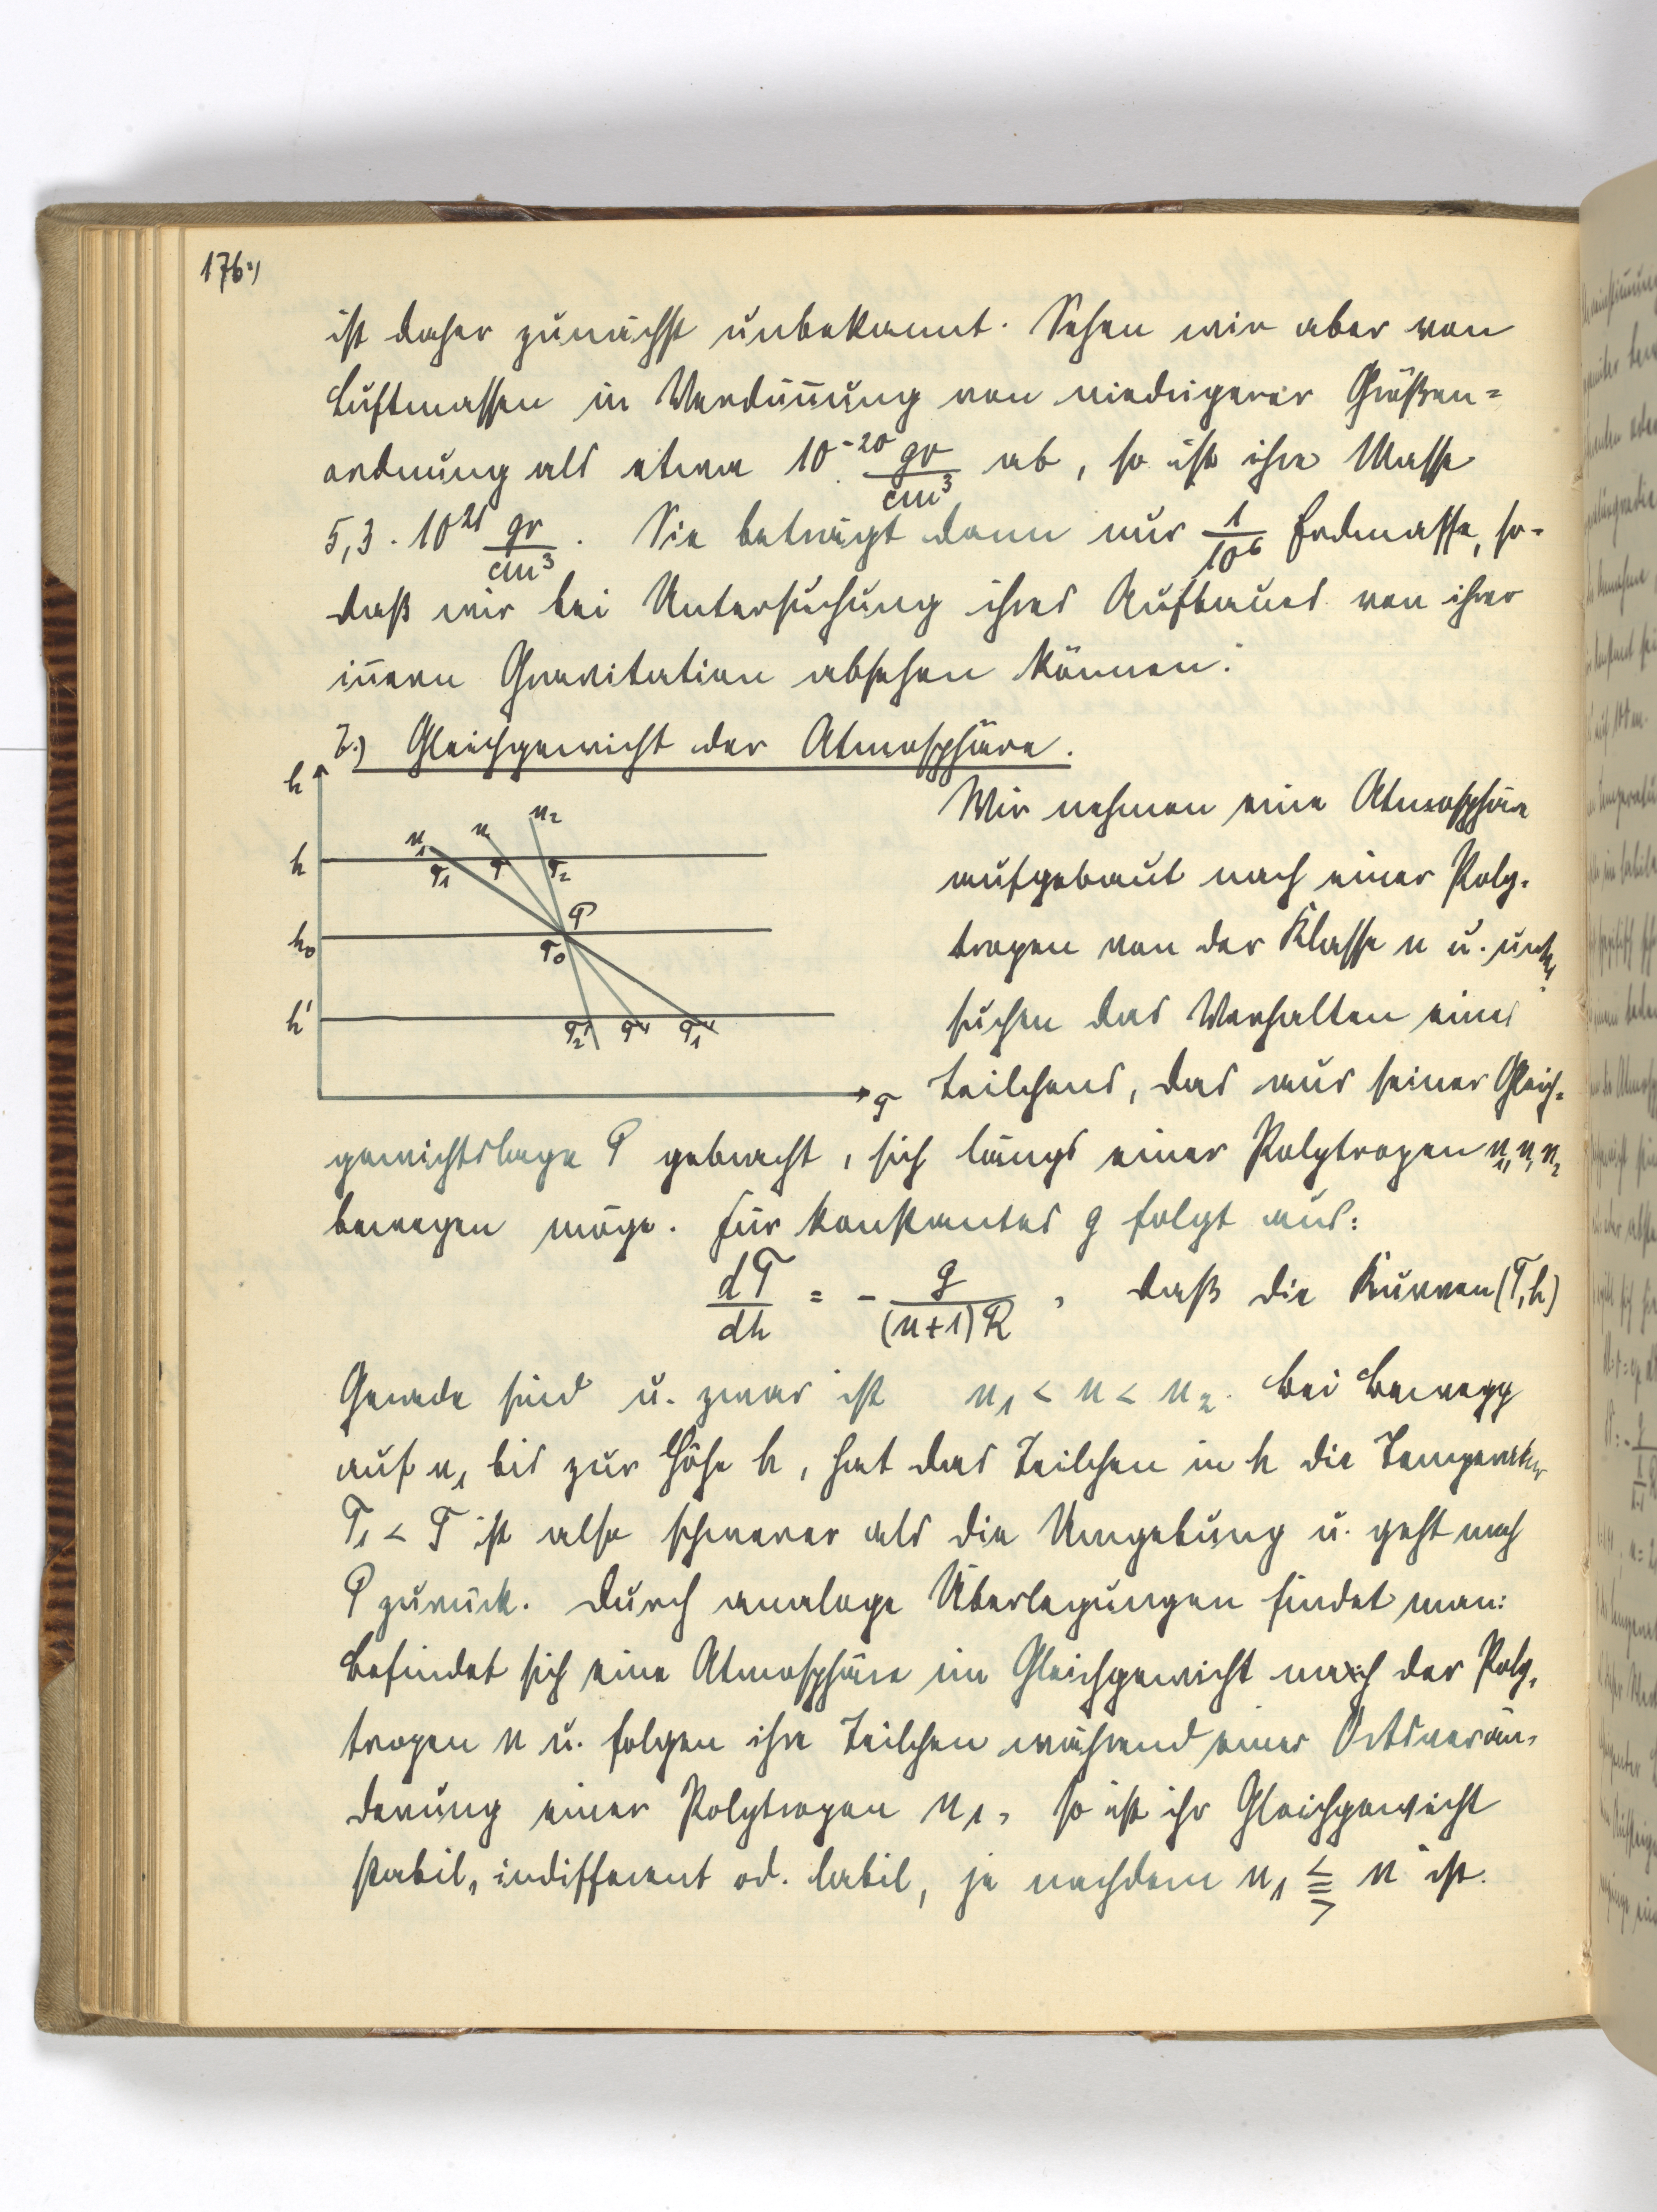 176.)
ist daher zunächst unbekannt. Sehen wir aber von
Luftmassen in Verdün̄ung von niedrigerer Größen=
ordnung als etwa 10⁻²⁰ gr/cm³ ab, so ist ihre Masse
5,3 · 10²¹ gr/cm³. Sie beträgt dann nur 1/10⁶ Erdmasse, so-
daß wir bei Untersuchung ihres Aufbaues von ihrer
in̄ern Gravitation absehen können.
7.) Gleichgewicht der Atmosphäre.
h
n₁ n n₂
h
T₁ T T₂
P
h₀
T₀
h'
T₂' T' T₁'
T
Wir nehmen eine Atmosphäre
aufgebaut nach einer Poly-
tropen von der Klasse n u. unter-
suchen das Verhalten eines
Teilchens, das aus seiner Gleich-
gewichtslage P gebracht, sich längs einer Polytropen n₁, n, n₂
bewegen möge. Für konstantes g folgt aus:
dT/dh = - g/((n+1)R), daß die Kurven (T,h)
Gerade sind u. zwar ist n₁ < n < n₂. Bei Bewegg
auf n₁ bis zur Höhe h, hat das Teilchen in h die Temperatur
T₁ < T ist also schwerer als die Umgebung u. geht nach
P zurück. Durch analoge Überlegungen findet man:
Befindet sich eine Atmosphäre im Gleichgewicht nach der Poly-
tropen n u. folgen ihre Teilchen während einer Ortsverän-
derung einer Polytropen n₁, so ist ihr Gleichgewicht
stabil, indifferent od. labil, je nachdem n₁ ⪋ n ist.